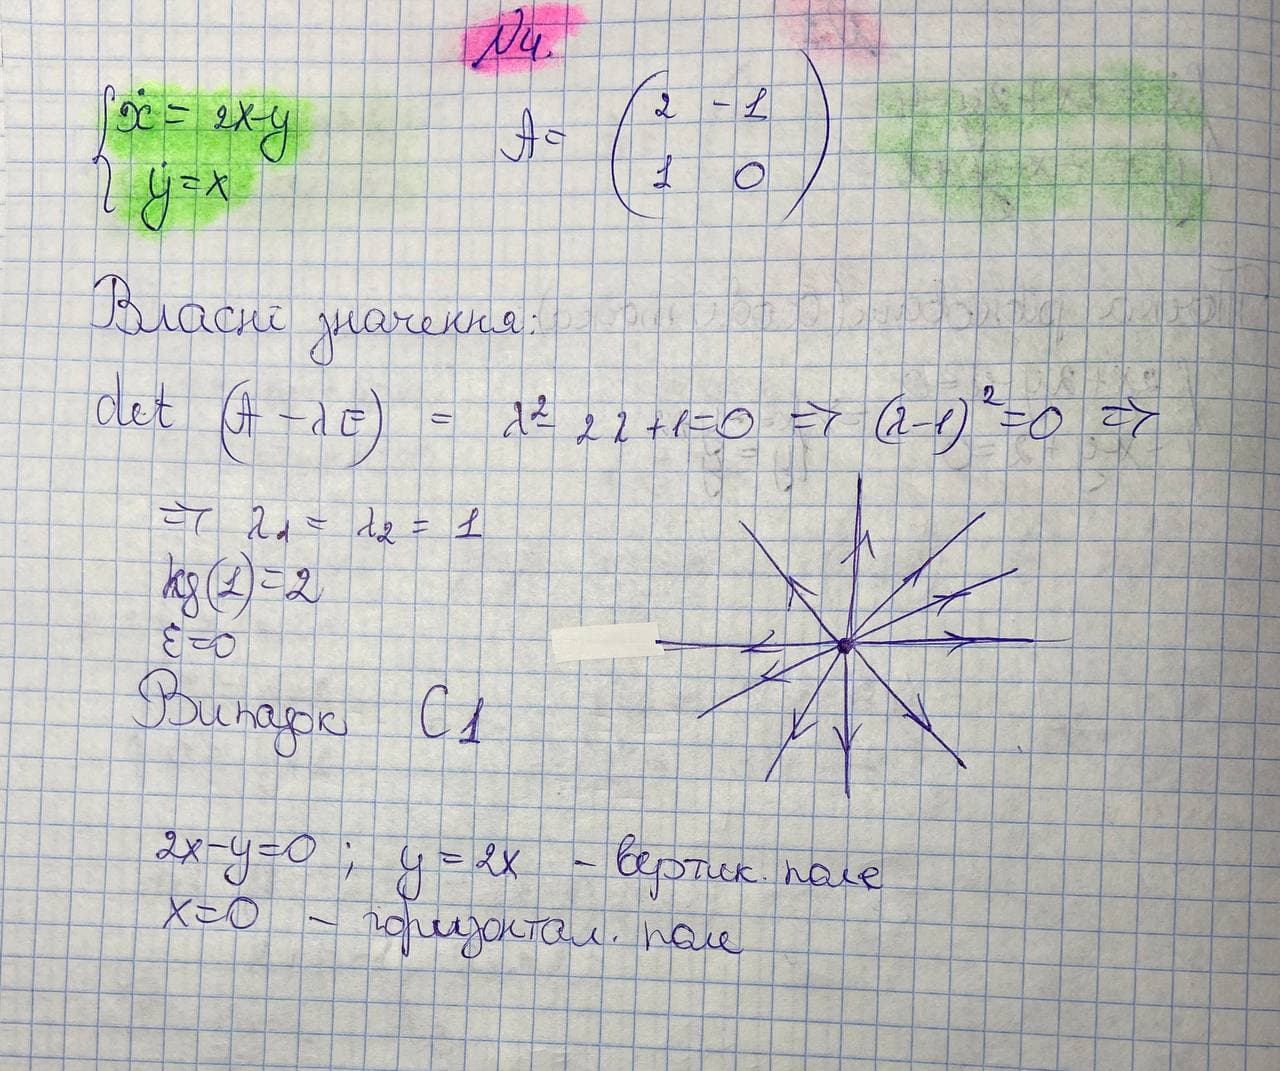 №4.
{ ẋ = 2x-y
ẏ = x
A = ( 2 -1
1 0 )
Власні значення:
det (A - λE) = λ² - 2λ + 1 = 0 => (λ-1)² = 0 =>
=> λ₁ = λ₂ = 1
kg(1) = 2
ε = 0
Випадок C1
2x-y=0 ; y = 2x - вертик. поле
x=0 - горизонтал. поле